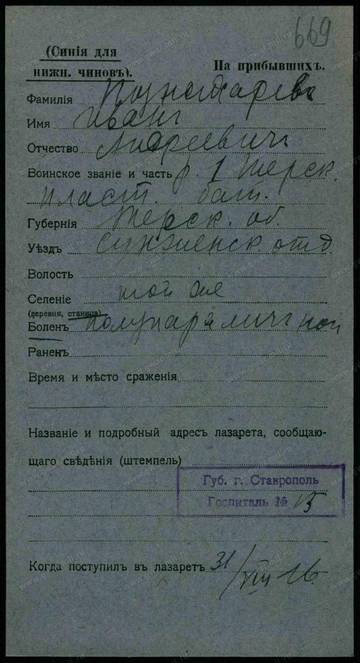 669
(Синія для
нижн. чиновъ).
На прибывшихъ.
Фамилія Пономаревъ
Имя Иванъ
Отчество Андреевичъ
Воинское званіе и часть р. 1 Терск.
Пласт. бат.
Губернія Терск. об.
Уѣздъ Сунженск. отд.
Волость
Селеніе той же
(деревня, станица)
Боленъ
Раненъ
Время и мѣсто сраженія
Названіе и подробный адресъ лазарета, сообщаю-
щаго свѣдѣнія (штемпель)
Губ. г. Ставрополь
Госпиталь № 15
Когда поступилъ въ лазаретъ 31/VIII 16.